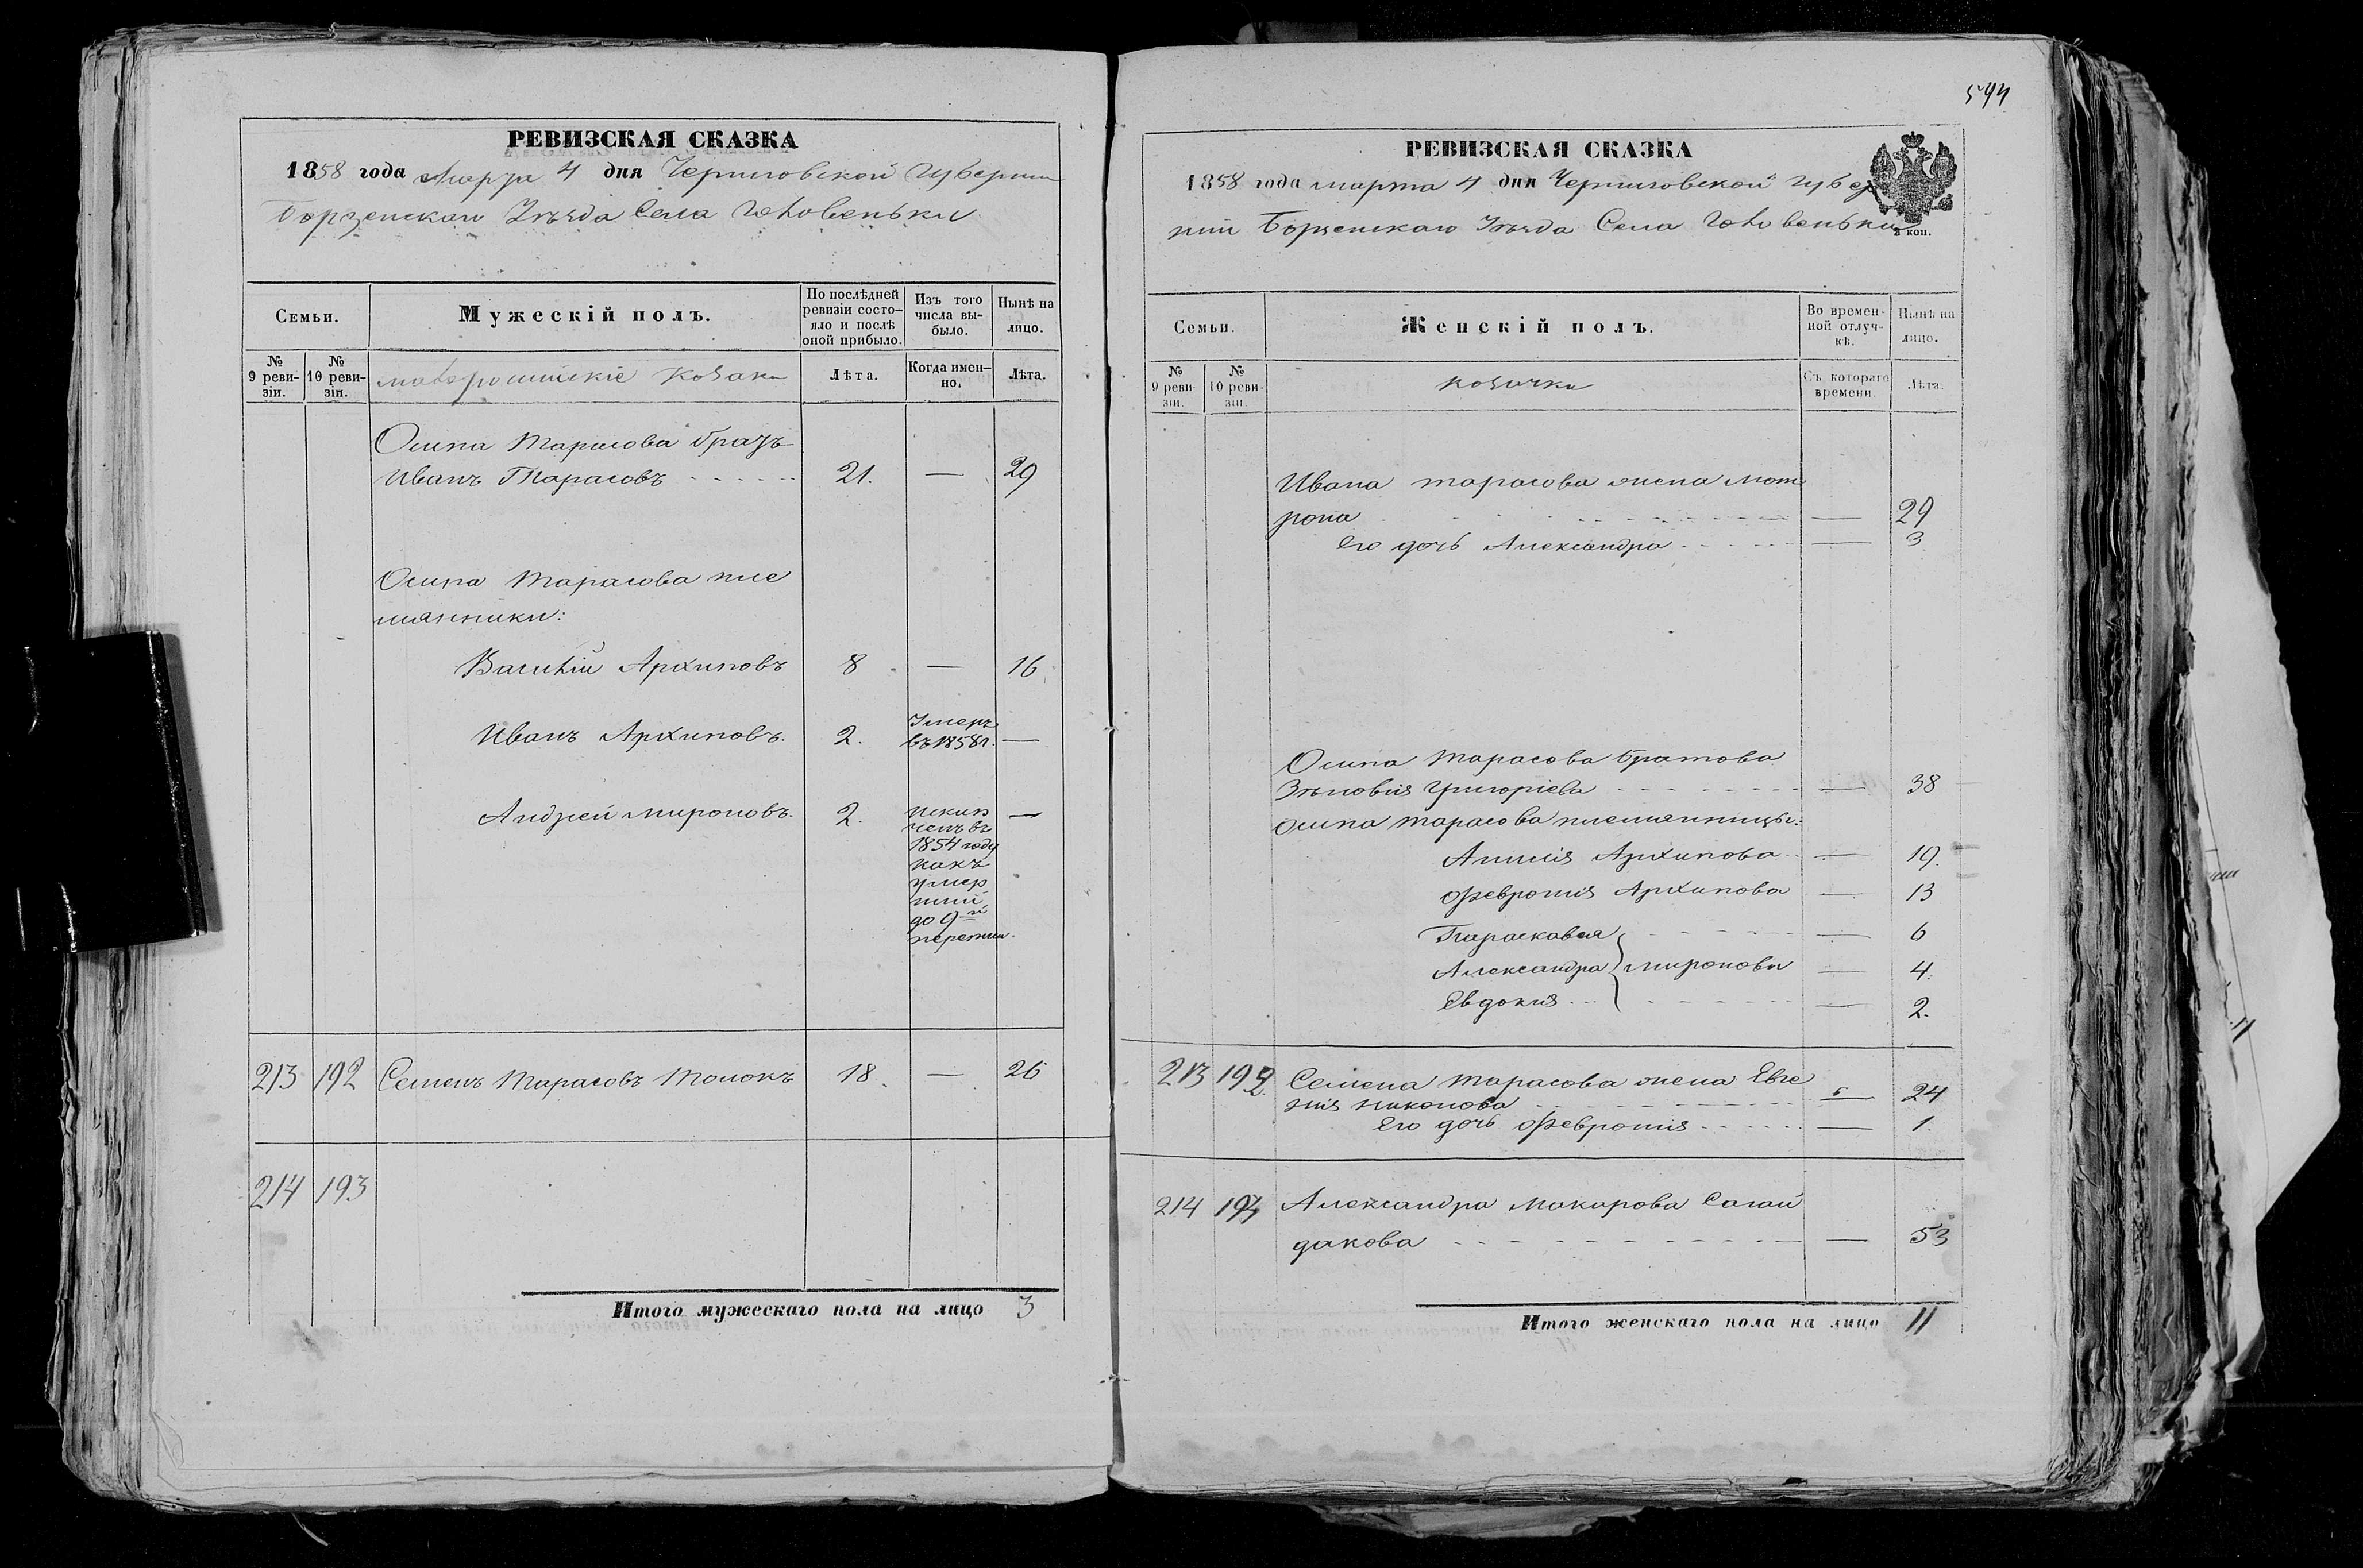 РЕВИЗСКАЯ СКАЗКА
1858 года марта 4 дня Черниговской Губернии
Борзенскаго Уѣзда Села Головеньки
Семьи.
Мужескій полъ.
По послѣдней ревизіи состояло и послѣ оной прибыло.
Изъ того числа выбыло.
Нынѣ на лицо.
№ 9 ревизіи.
№ 10 ревизіи.
малороссийскіе козаки
Лѣта.
Когда именно.
Лѣта.
Осипа Тарасова братъ
Иванъ Тарасовъ 21. — 29
Осипа Тарасова пле
мянники:
Василій Архиповъ 8 — 16
Иванъ Архиповъ. 2. Умеръ въ 1858 г. —
Андрей Мироновъ. 2. исклю
ченъ въ
1854 году
какъ
умер
шій
до 9-й
—
213 192 Семенъ Тарасовъ Молокъ 18. — 26
214 193
Итого мужескаго пола на лицо 3
544
РЕВИЗСКАЯ СКАЗКА
1858 года марта 4 дня Черниговской губер
ніи Борзенскаго Уѣзда Села Головеньки
3 коп.
Семьи.
Женскій полъ.
Во временной отлучкѣ.
Нынѣ на лицо.
№ 9 ревизіи.
№ 10 ревизіи.
козачки
Съ котораго времени.
Лѣта.
Ивана Тарасова жена Мот
рона — 29
Его дочь Александра — 3
Осипа Тарасова братова
Зѣновия Григоріева — 38
Осипа Тарасова племянницы:
Архипова — 19
Февронія Архипова — 13
Парасковия — 6
Александра } Миронови — 4.
Евдокия — 2.
213 192 Семена Тарасова жена Евге
нія Никонова — 24
Его дочь Февронія — 1.
214 193 Александра Макарова Сагай
дакова — 53
Итого женскаго пола на лицо 11